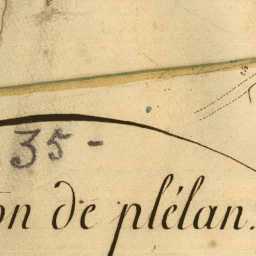 35-
on de plélan.